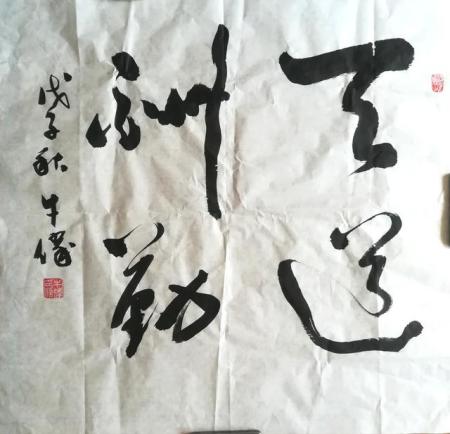 天道
酬勤
戊子秋 牛